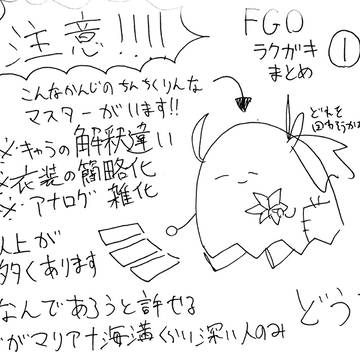 注意!!!!
FGO
ラクガキ
まとめ
①
こんなかんじのちんちくりんな
マスターがいます!!
※キャラの解釈違い
※衣装の簡略化
※アナログ 雑化
以上が
多くあります
なんであろうと許せる
がマリアナ海溝くらい深い人のみ
どう